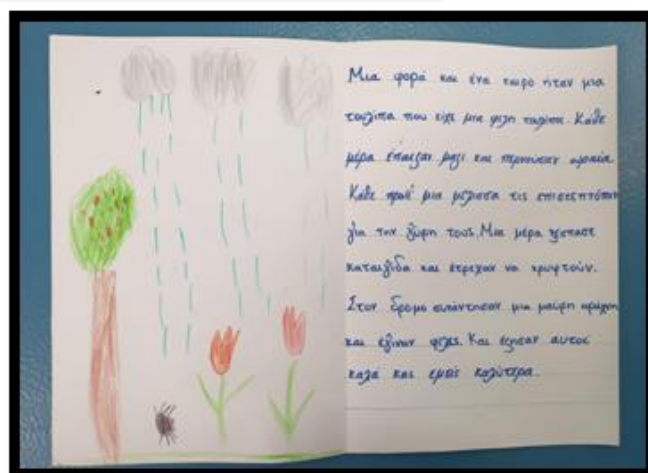 Μια φορά και ένα καιρό ήταν μια
τουλίπα που είχε μια φίλη τουλίπα. Κάθε
μέρα έπαιζαν μαζί και περνούσαν ωραία.
Κάθε πρωί μια μέλισσα τις επισκεπτόταν
για την γύρη τους. Μια μέρα ξέσπασε
καταιγίδα και έτρεχαν να κρυφτούν.
Στον δρομο συνάντησαν μια μαύρη αράχνη
και έγιναν φίλες. Και έζησαν αυτοί
καλά και εμείς καλύτερα.